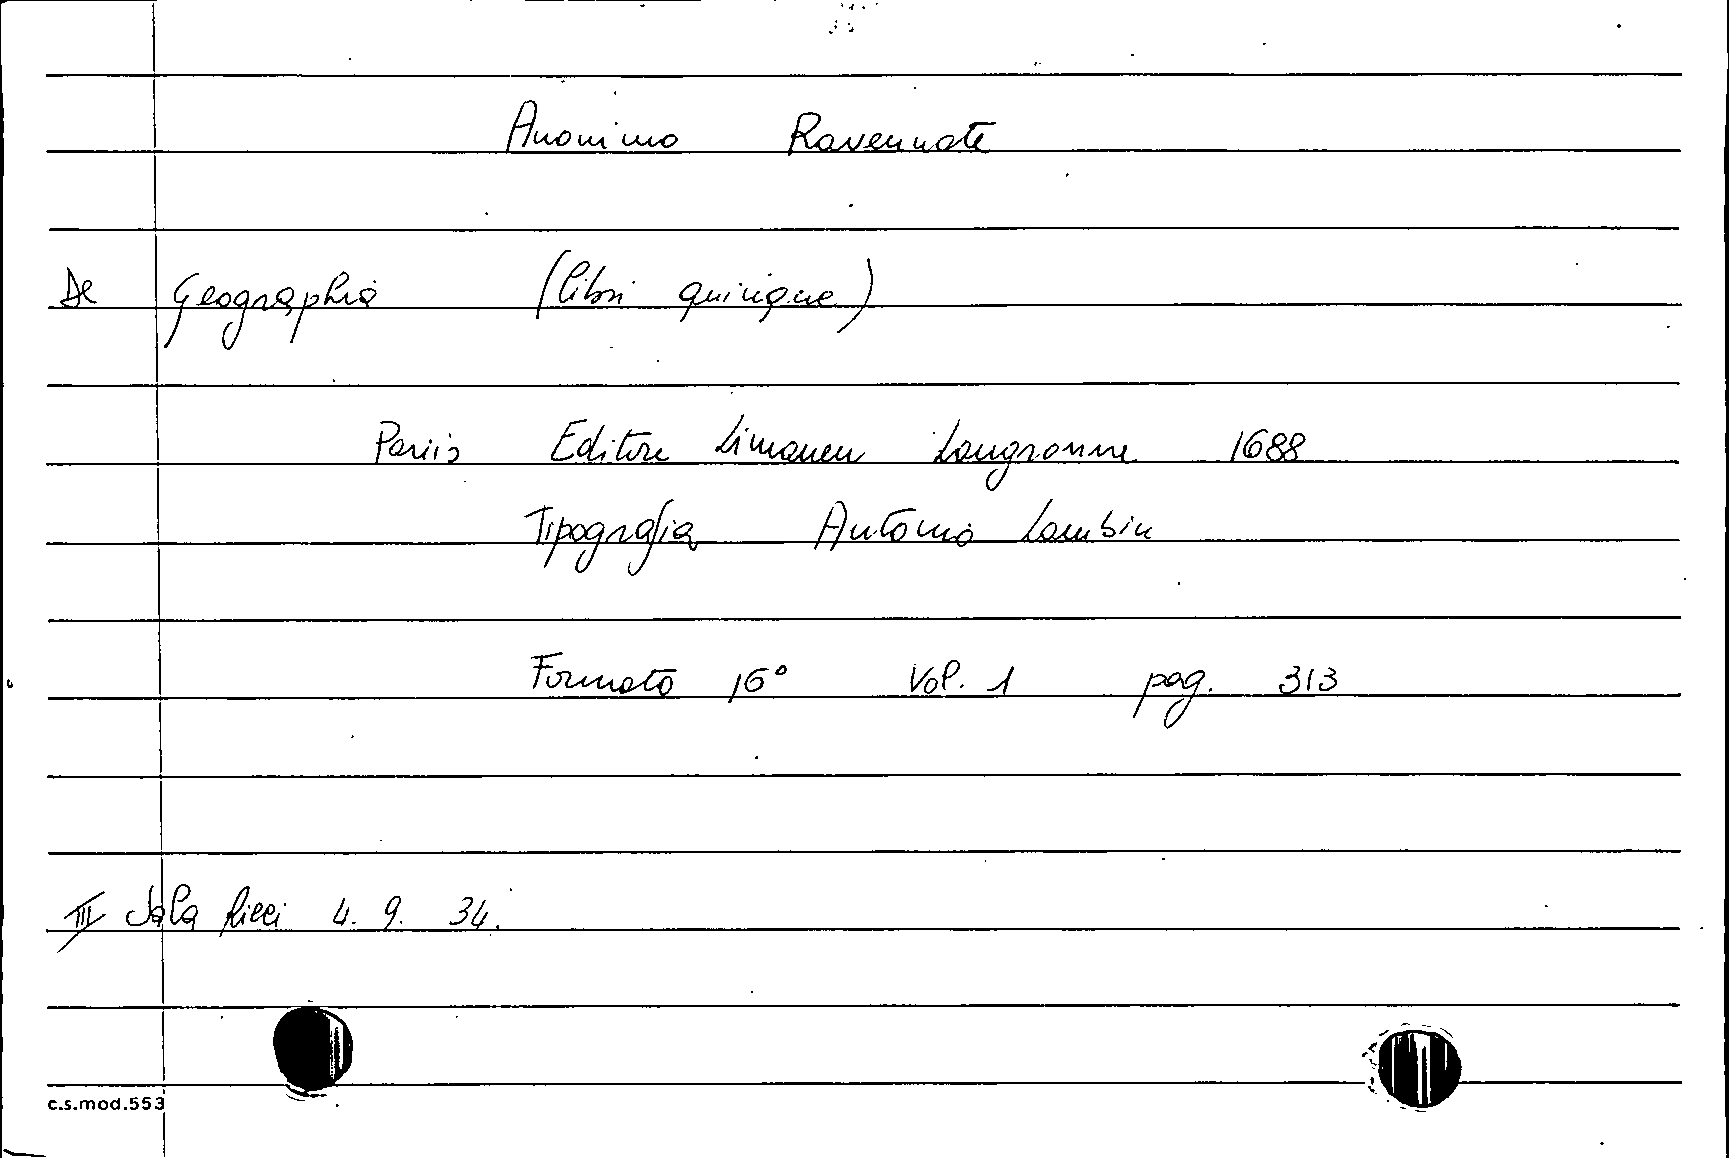 Anonimo Ravennate
De Geographia (libri quinque)
Pariis Editore Simonem Langronne 1688
Tipografia Antonio Lambin
Formato 16° Vol. 1 pag. 313
III Sala Ricci 4. 9. 34.
c.s.mod.553